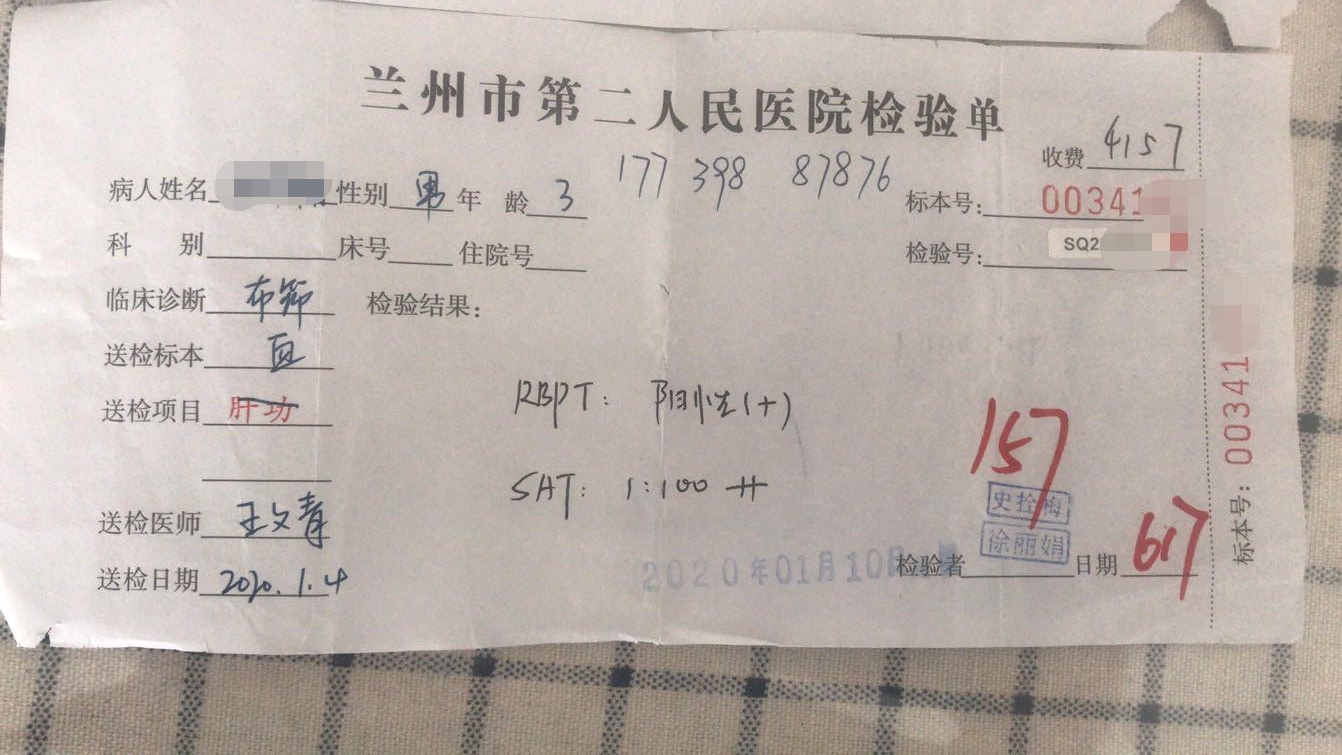 兰州市第二人民医院检验单
收费 4157
177 398 87876
病人姓名 性别 男 年 龄 3
标本号: 00341
科 别 床号 住院号
检验号: SQ2
临床诊断 布筛 检验结果:
送检标本 血
送检项目 肝功
RBPT: 阳性(+)
SAT: 1:100 ++
157
史拴梅
徐丽娟
送检医师 王文青
送检日期 2020.1.4
2020年01月10日
检验者 日期 617
标本号: 00341